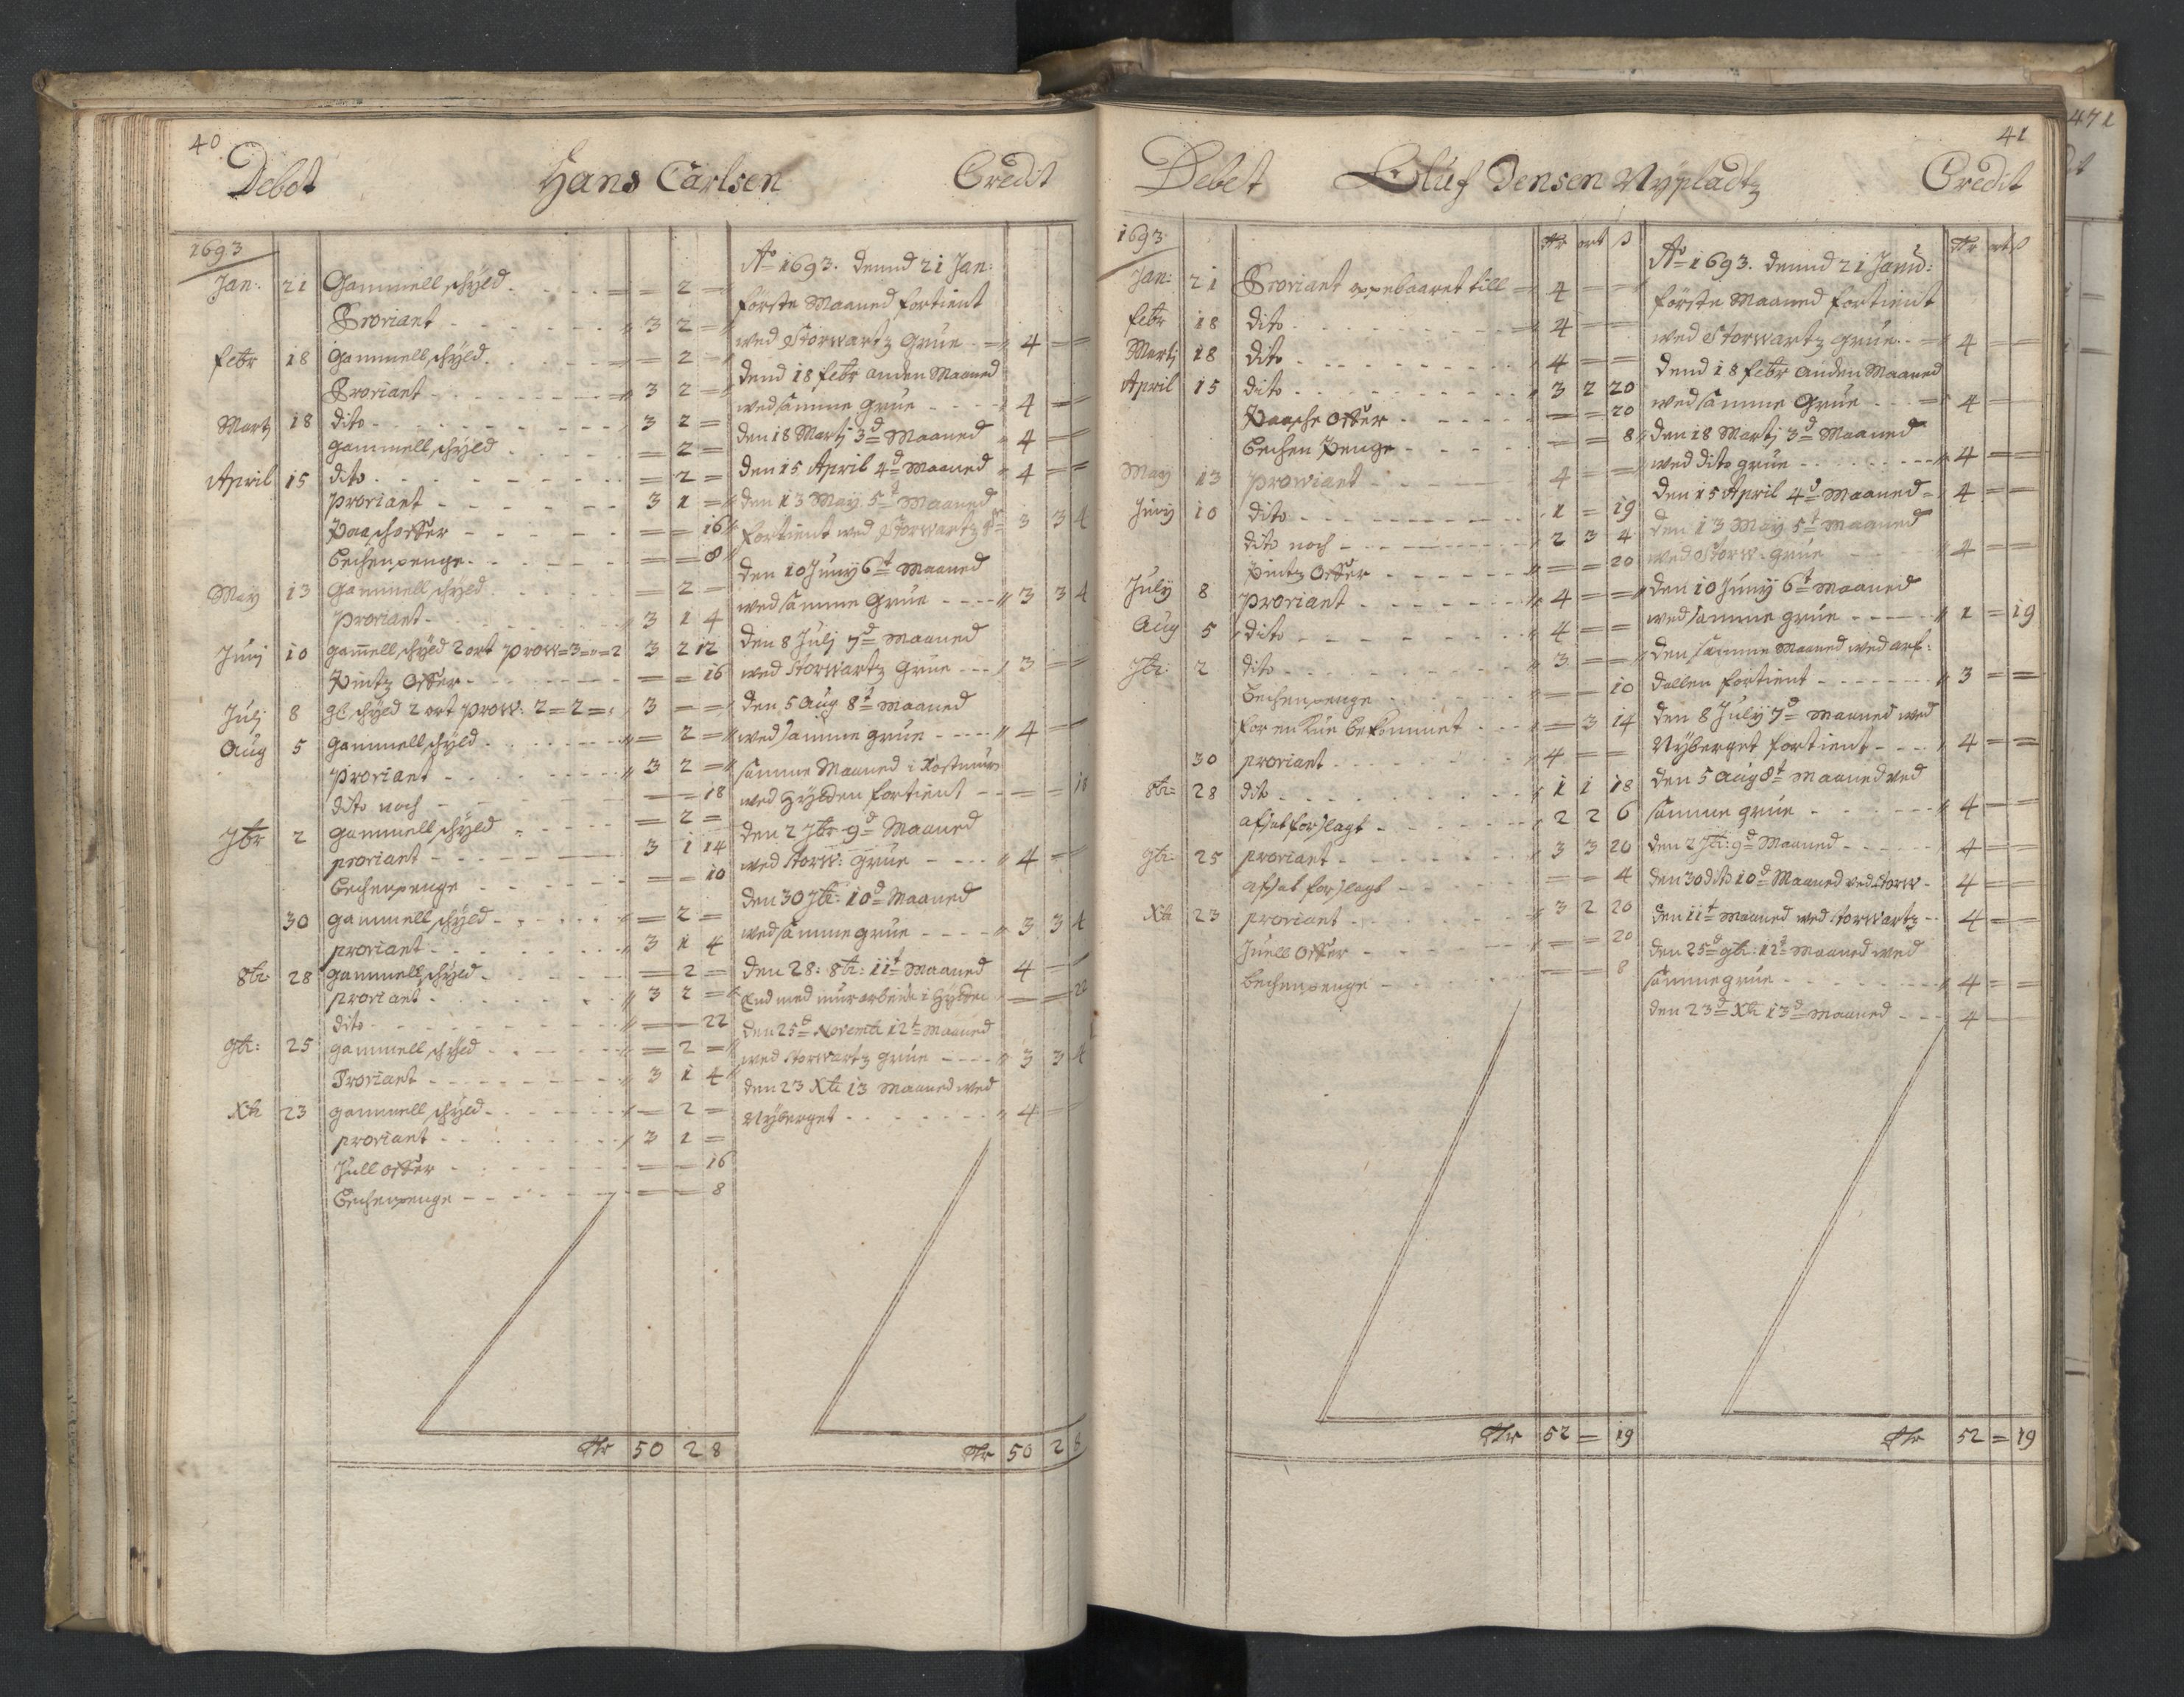 40
Debet Hans Carlsen Credit
1693
Jan: 21 Gammell schÿld - - = 2 =
Proviant - - 3 2 =
febr 18 gammell schÿld - - = 2 =
Proviant - - 3 2 =
Martj 18 dito - - 3 2 =
gammell schÿld - - = 2 =
April 15 dito - - = 2 =
proviant - - 3 1 =
Paaschoffer - - = = 16
Bechenpenge - - = = 8
Maÿ 13 gammell schÿld - - = 2 =
proviant - - 3 1 4
Junj 10 gamell schÿld 2 ort prow = 3 = „ = 2 3 2 12
Pintz Offer - - = = 16
Julj 8 gl. schÿld 2 ort prow: 2 = 2 = „ 3 = =
Aug 5 gammell schÿld - - = 2 =
proviant - - 3 2 =
dito noch - - = = 18
7br 2 gammell schÿld - - = 2 =
proviant - - 3 1 14
Bechenpenge - - = = 10
30 gammell schÿld - - = 2 =
proviant - - 3 1 4
8br 28 gammell schÿld - - = 2 =
proviant - - 3 2 =
dito - - = = 22
9br: 25 gammell schÿld - - = 2 =
Proviant - - 3 1 4
Xbr 23 gammell schÿld - - = 2 =
proviant - - 3 1 =
Jull offer - - = = 16
Bechenpenge - - = = 8
Rdr 50 2 8
Ao 1693. dennd 21 Jan:
förste Maaned fortient
wed Storwartz Grue - - 4 = =
dend 18 febr anden Maaned
wed samme grue - - 4 = =
den 18 Martj 3d Maaned 4 = =
den 15 April 4d Maaned 4 = =
den 13 Maÿ 5t Maaned
fortient wed Storwartz gr 3 3 4
den 10 Junÿ 6t Maaned
wed samme Grue - - 3 3 4
den 8 Julj 7d Maaned
wed Storwartz Grue - - 3 = =
den 5 Aug 8t Maaned
wed samme grue - - 4 = =
samme Maaned i Rostmúr
wed Hÿtten fortient - - = = 18
den 2 7br 9d Maaned
wed Storw: grue - - 4 = =
den 30 7br: 10d Maaned
wed samme grue - - 3 3 4
den 28: 8br: 11t Maaned 4 = =
End med murarbeide i Hÿtten = = 22
den 25d Novembr 12t Maaned
wed Storwartz grue - - 3 3 4
den 23 Xbr 13 Maaned wed
Nÿberget - - 4 = =
Rdr 50 2 8
41
Debet Oluf Jensen Nÿpladtz Credit
1693
Rdr ort ß
Jan: 21 Proviant oppebaaret till 4 = =
febr 18 dito - - 4 = =
Martj 18 dito - - 4 = =
April 15 dito - - 3 2 20
Paasche Offer - - = = 20
Bechen Penge - - = = 8
Maÿ 13 prowiant - - 4 = =
Junÿ 10 dito - - 1 = 19
dito noch - - 2 3 4
Pintz Offer - - = = 20
Julÿ 8 proviant - - 4 = =
Aug 5 dito - - 4 = =
7br: 2 dito - - 3 = =
Bechenpenge - - = = 10
for en Kue bekommet - - = 3 14
30 proviant - - 4 = =
8br= 28 dito - - 1 1 18
afsat forslagt - - 2 2 6
9br: 25 proviant - - 3 3 20
afsat forslagt - - = = 4
Xbr 23 proviant - - 3 2 20
Juell Offer - - = = 20
bechenpenge - - = = 8
Rdr 52 = 19
Rdr ort ß
Ao 1693. dennd 21 Janu:
förste Maaned fortient
wed Storwartz grue - - 4 = =
dend 18 febr anden Maaned
wed samme Grue - - 4 = =
den 18 Martj 3d Maaned
wed dito grue - - 4 = =
den 15 April 4d Maaned = 4 = =
den 13 Maÿ 5t Maaned
wed Storw. grue - - 4 = =
den 10 Junÿ 6t Maaned
wed samme grue - - 1 = 19
den samme Maaned wed arf:
dallen fortient - - 3 = =
den 8 Julÿ 7d Maaned wed
Nÿberget fortient - - 4 = =
den 5 Aug 8t Maaned wed
samme grue - - 4 = =
den 2 7br: 9d Maaned - - 4 = =
den 30 dito 10d Maaned wed Storw - 4 = =
den 11t Maaned wed Storwartz - - 4 = =
den 25d 9br: 12t Maaned wed
samme grue - - 4 = =
den 23d Xbr 13d Maaned - - 4 = =
Rdr 52 = 19
471